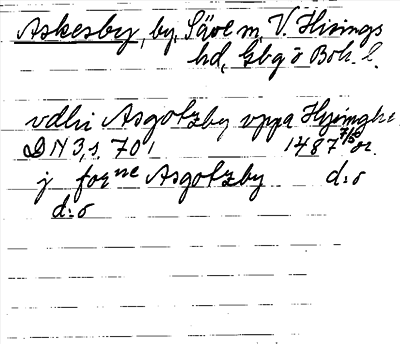 Askesby, by, Säve sn, V. Hisings
hd, Gbg o Boh. l.
vdhi Asgotzby vppa Hysinghe
DN 3, s. 701 1487 7/5 or.
j forne Asgotzby d:o
d:o